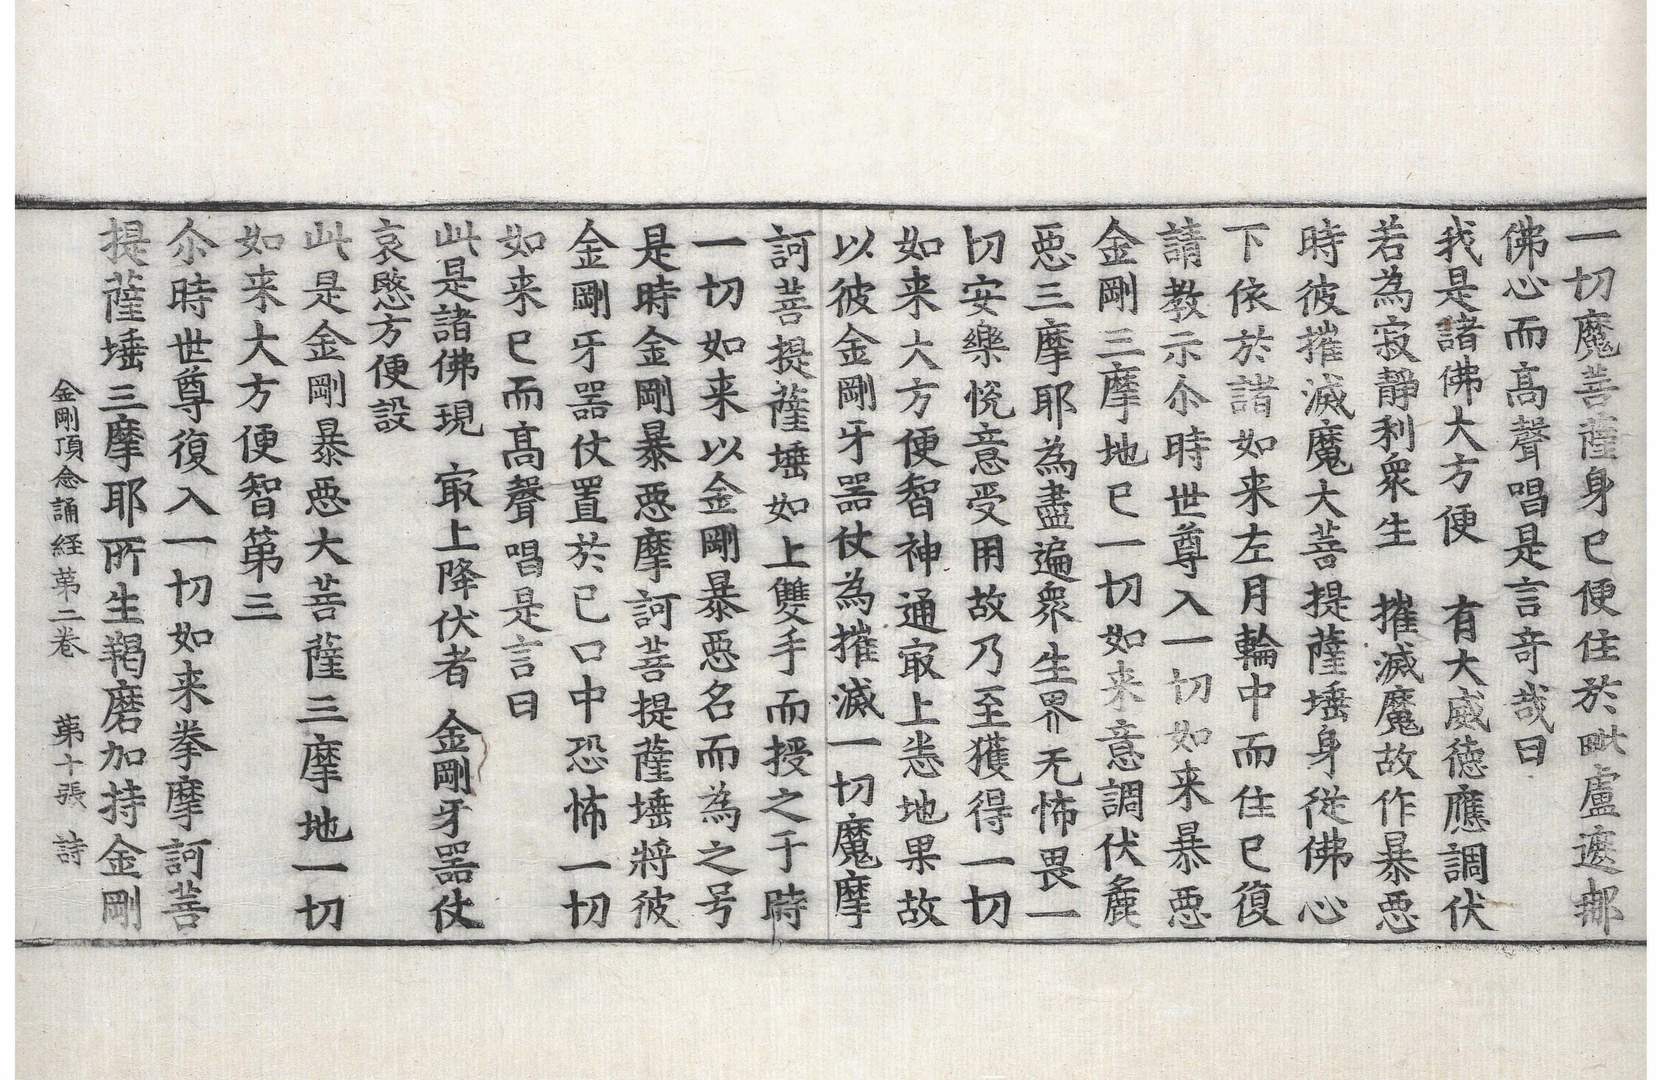 一切魔菩薩身已便住於毗盧遮那
佛心而高聲唱是言奇哉曰
我是諸佛大方便　有大威德應調伏
若為寂靜利衆生　摧滅魔故作暴惡
時彼摧滅魔大菩提薩埵身從佛心
下依於諸如来左月輪中而住已復
請教示尒時世尊入一切如来暴惡
金剛三摩地已一切如来意調伏麁
惡三摩耶為盡遍衆生界无怖畏一
切安樂悅意受用故乃至獲得一切
如来大方便智神通冣上悉地果故
以彼金剛牙噐仗為摧滅一切魔摩
訶菩提薩埵如上雙手而授之于時
一切如来以金剛暴惡名而為之号
是時金剛暴惡摩訶菩提薩埵將彼
金剛牙噐仗置於已口中恐怖一切
如来已而高聲唱是言曰
此是諸佛現　冣上降伏者　金剛牙噐仗
哀愍方便設
此是金剛暴惡大菩薩三摩地一切
如来大方便智第三
尒時世尊復入一切如来拳摩訶菩
提薩埵三摩耶所生羯磨加持金剛
金剛頂念誦経第二卷　第十張　詩